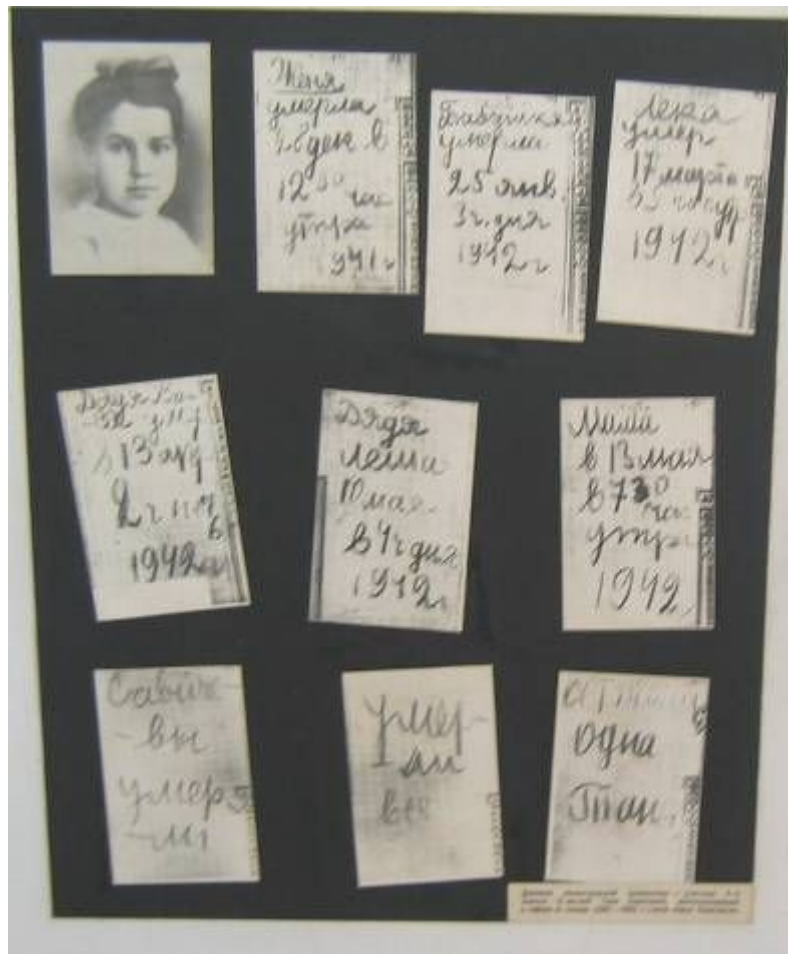 Женя
умерла
28 дек в
12 30 час
утра
1941 г
Бабушка
умерла
25 янв.
3 ч. дня
1942 г
Лека
умер
17 марта
в 5 час утр
1942 г.
Дядя Ва-
ся умер
в 13 апр
2 ч ноч
1942 г
Дядя
Леша
10 мая
в 4 ч дня
1942 г
Мама
в 13 мая
в 7 30
час
утра
1942
Савиче
-вы
умер
-ли
умер-
ли
все
одна
Таня.